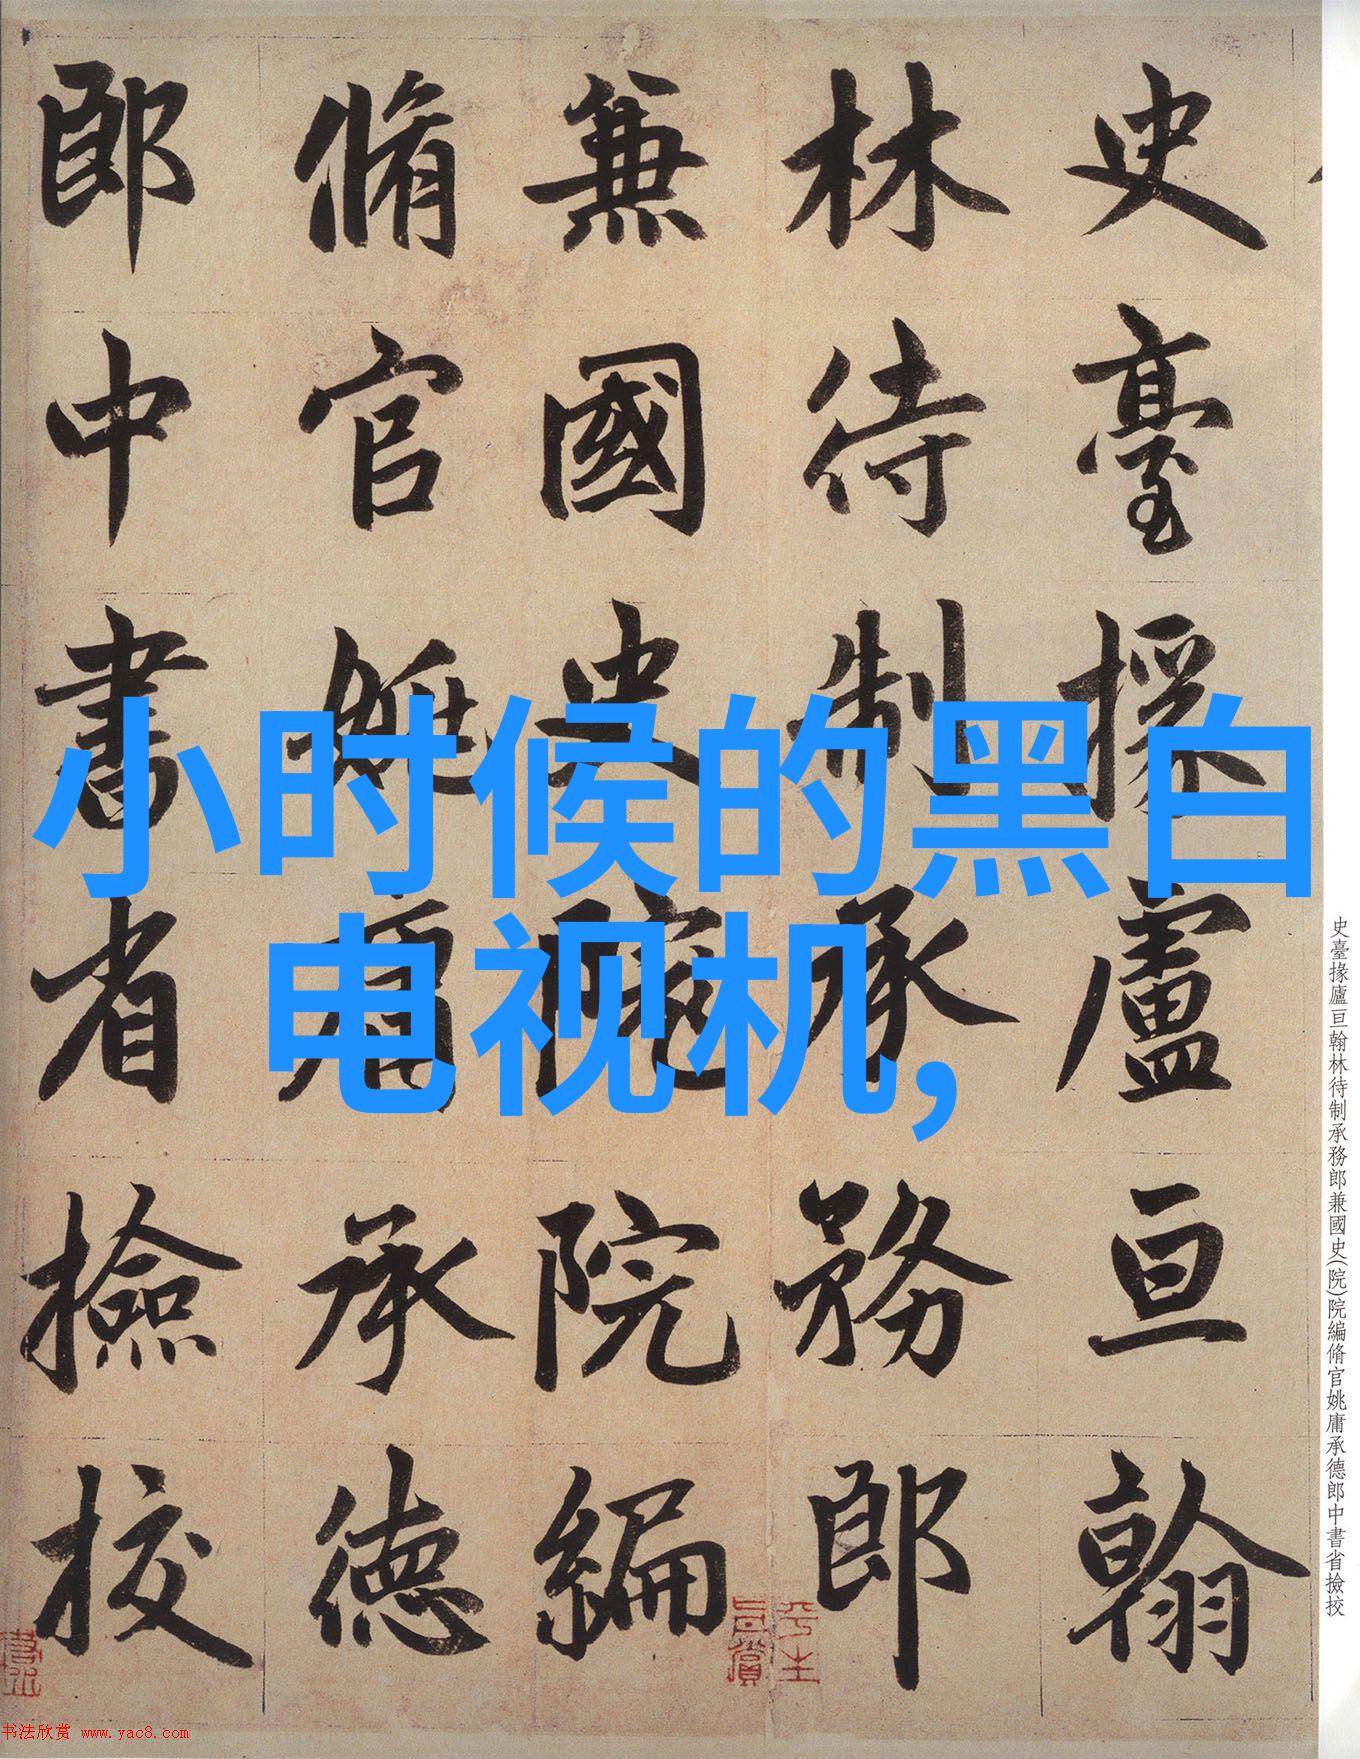 史臺掾盧亘翰
林待制承務郎
兼國史院院編
脩官姚庸承德
郎中書省撿挍
小时候的黑白
电视机,
史臺掾廬亘翰林待制承務郎兼國史(院)院編脩官姚庸承德郎中書省撿挍
书法欣赏 www.yac8.com